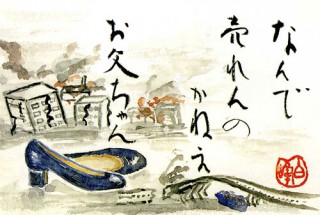 なんで
売れんの
かねえ
お父ちゃん